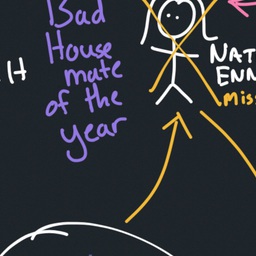 Bad
House
mate
of the
year
H
NAT
ENN
mis